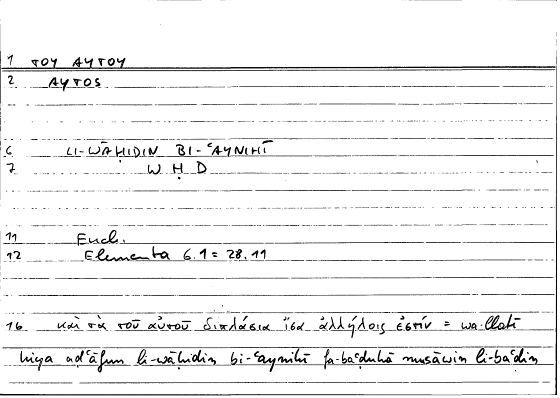 1 ΤΟΥ ΑΥΤΟΥ
2 ΑΥΤΟS
6 LI-WĀḤIDIN BI-ʿAYNIHĪ
7 W Ḥ D
11 Eucl.
12 Elementa 6.1 = 28.11
16 καὶ τὰ τοῦ αὐτοῦ διπλάσια ἴσα ἀλλήλοις ἐστίν = wa-llatī
hiya aḍʿāfun li-wāḥidin bi-ʿaynihī fa-baʿḍuhā musāwin li-baʿḍin